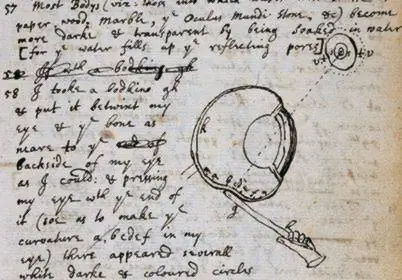 57 Most Bodys (viz: those into which
paper, wood, marble, ye Oculus Mundi Stone, &c) become
more darke & transparent by being soaked in water
[for ye water fills up ye reflecting pores]
58 I tooke a bodkine gh
& put it betwixt my
eye & ye bone as
neare to ye backside
of my eye
as I could: & pressing
my eye wth ye end of
it (soe as to make ye
curvature a, bcdef in my
eye) there appeared severall
white darke & coloured circles
h
g